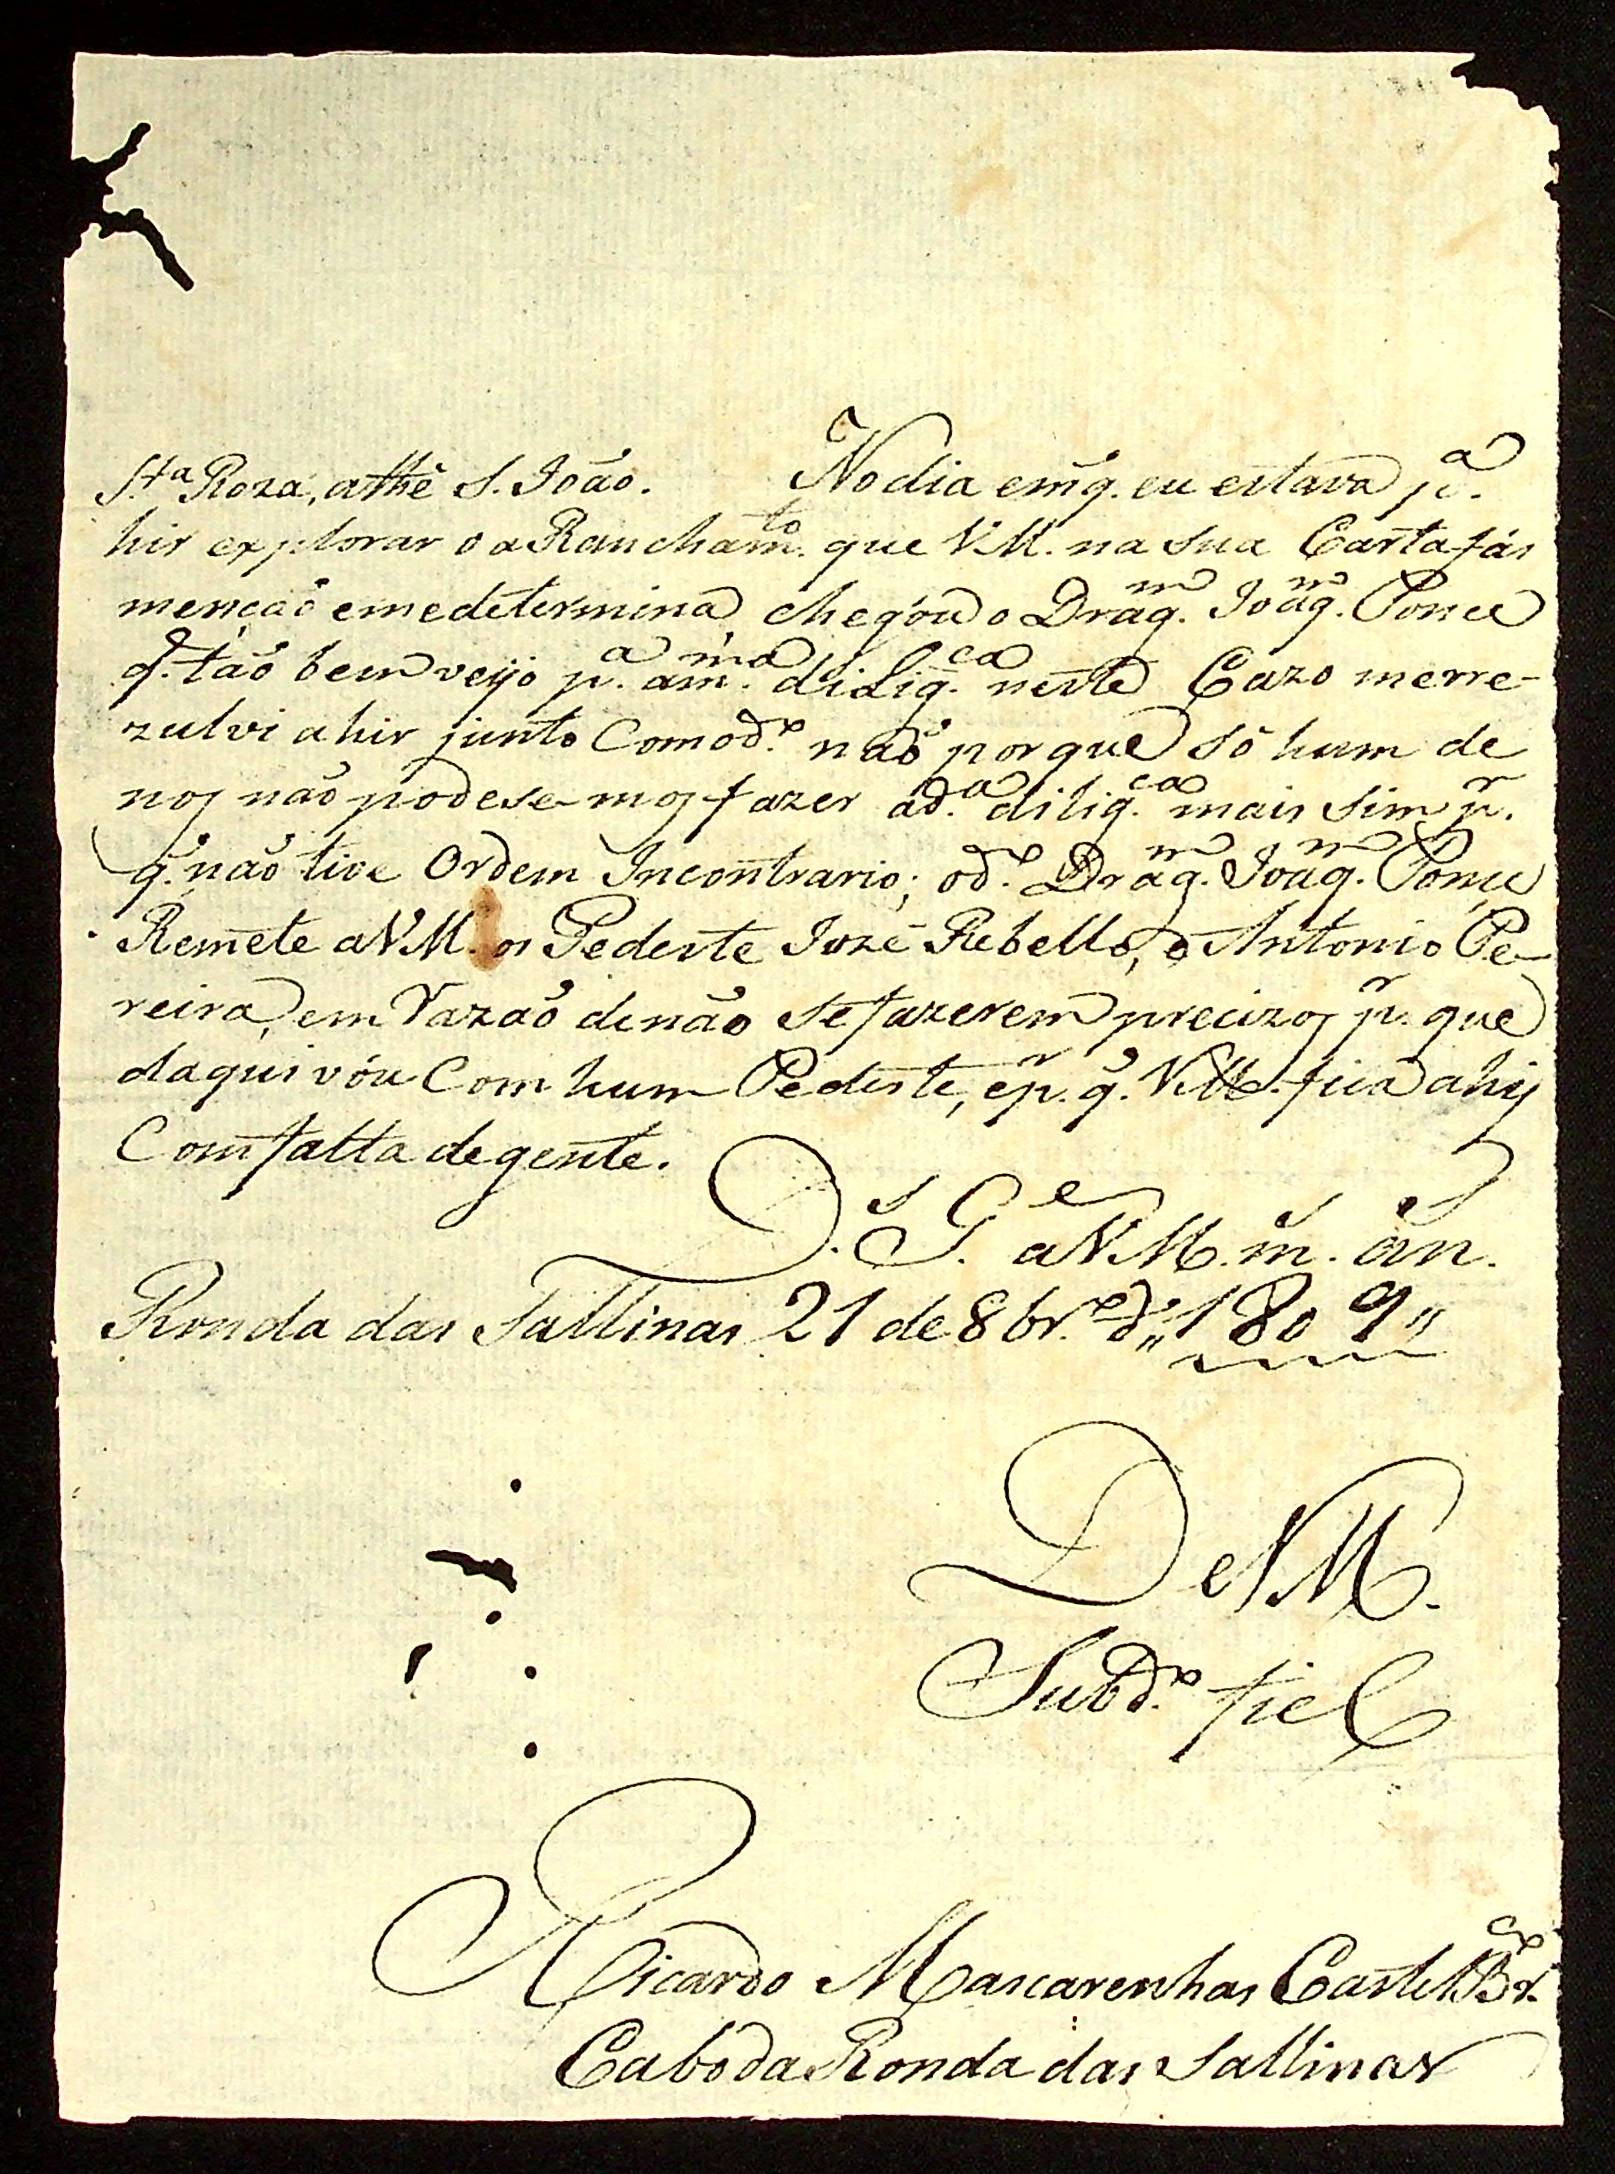 S.ta Roza, athé S. João. No dia em q̃. eu estava p.a
hir explorar o aRancham.to que V.M. na sua Carta fás
menção e me determina, chegou o Drag.m Joaq.m Ponce
q̃. tão bem veyo p.a a m.ma dilig.ca neste Cazo me rre-
zulvi a hir junto Com o d.o não por que só hum de
nos não podese-mos fazer a d.a dilig.ca mais sim p.r
q̃. não tive Ordem Incontrario; o d.o Drag.m Joaq.m Ponce
Remete a V.M. os Pedeste Jozé Rebello, e Antonio Pe-
reira, em razaõ de não se fazerem precizos p.r que
daqui vóu Com hum Pedeste, e p.r q̃. V.M. fica ahy
Com falta de gente.
D.s G.e a V.M. m.s an.s
Ronda das Sallinas 21 de 8br.o d" 1809"
De V.M.
Subd.o fiel
Ricardo Mascarenhas Castel Br.co
Cabo da Ronda das Sallinas